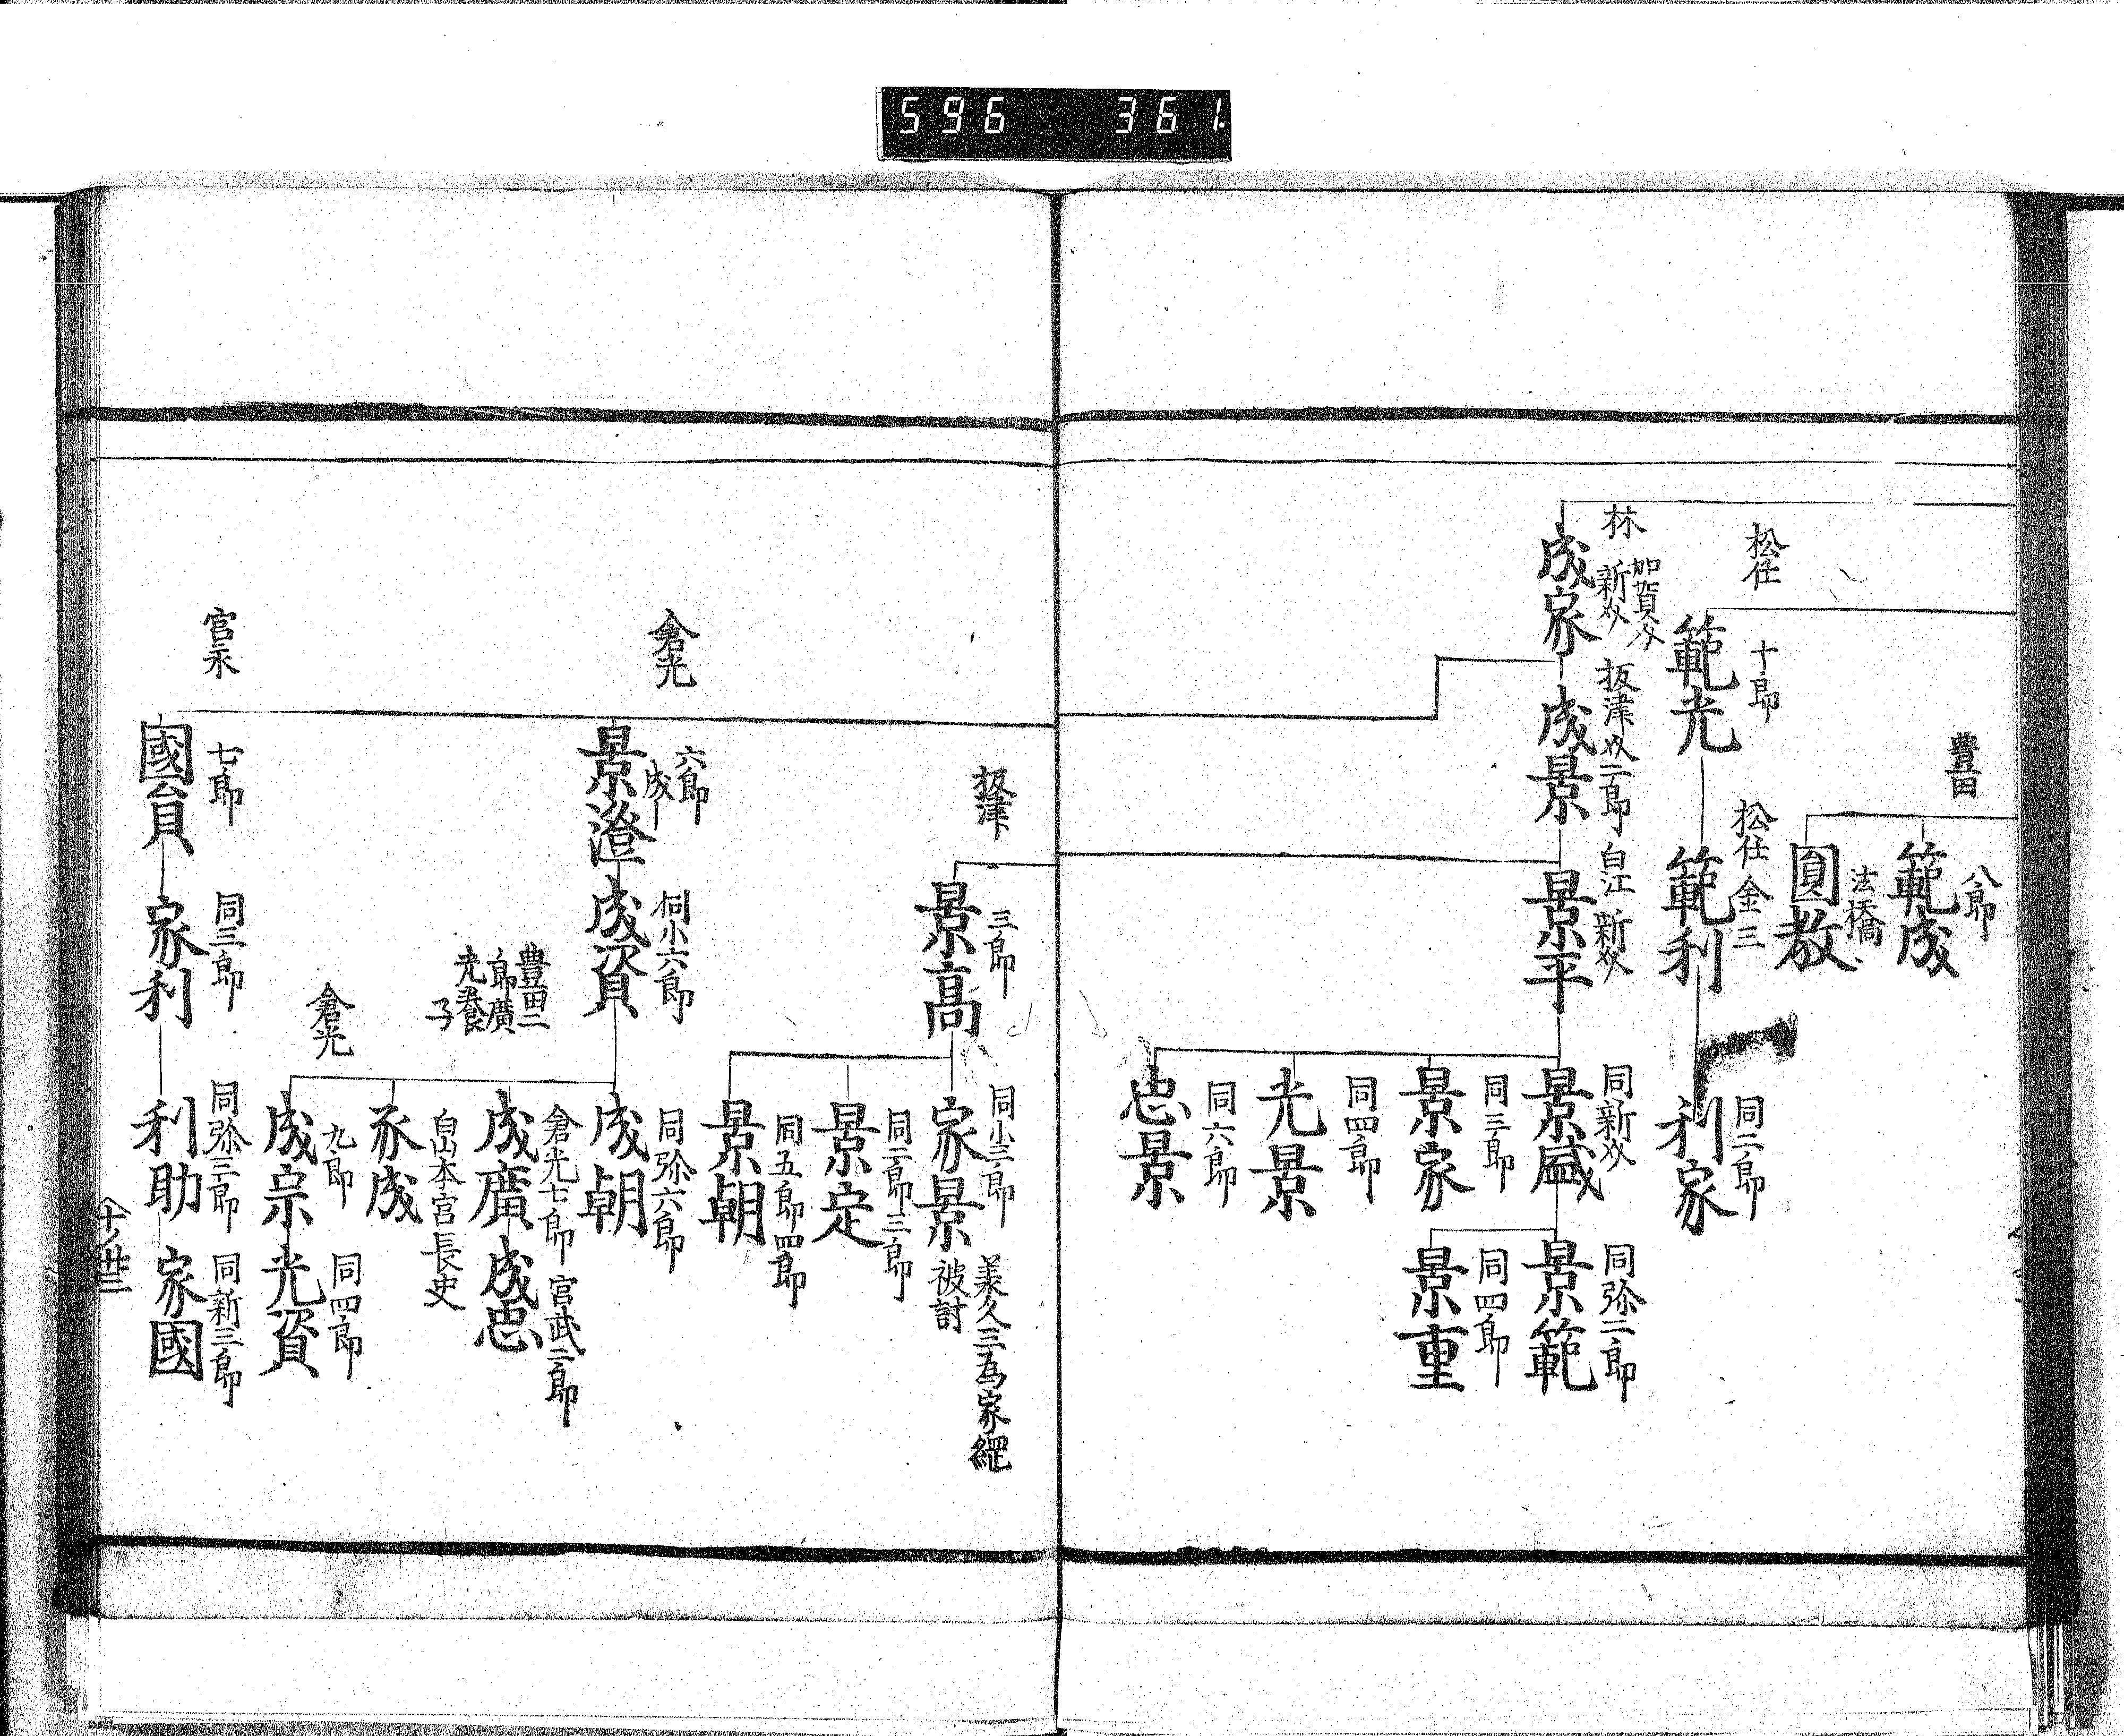 596 361.
豊田
八郎
範成
法橋
圓教
松任
十郎
範光
松任 金三
範利
同二郎
利家
林
加賀介
新介
成家
板津介二郎
成景
白江 新介
景平
同新介
景盛
同弥二郎
景範
同四郎
景重
同三郎
景家
同四郎
光景
同六郎
忠景
板津
三郎
景高
同小三郎
家景
羕久三為家綱
被討
同二郎三郎
景定
同五郎四郎
景朝
倉光
六郎
成
景澄
同小六郎
成資
同弥六郎
成朝
豊田二
郎廣
光養
子
倉光七郎
成廣
宮武二郎
成忠
白山本宮長吏
家成
倉光
九郎
成宗
同四郎
光資
宮永
七郎
國員
同三郎
家利
同弥三郎
利助
同新三郎
家國